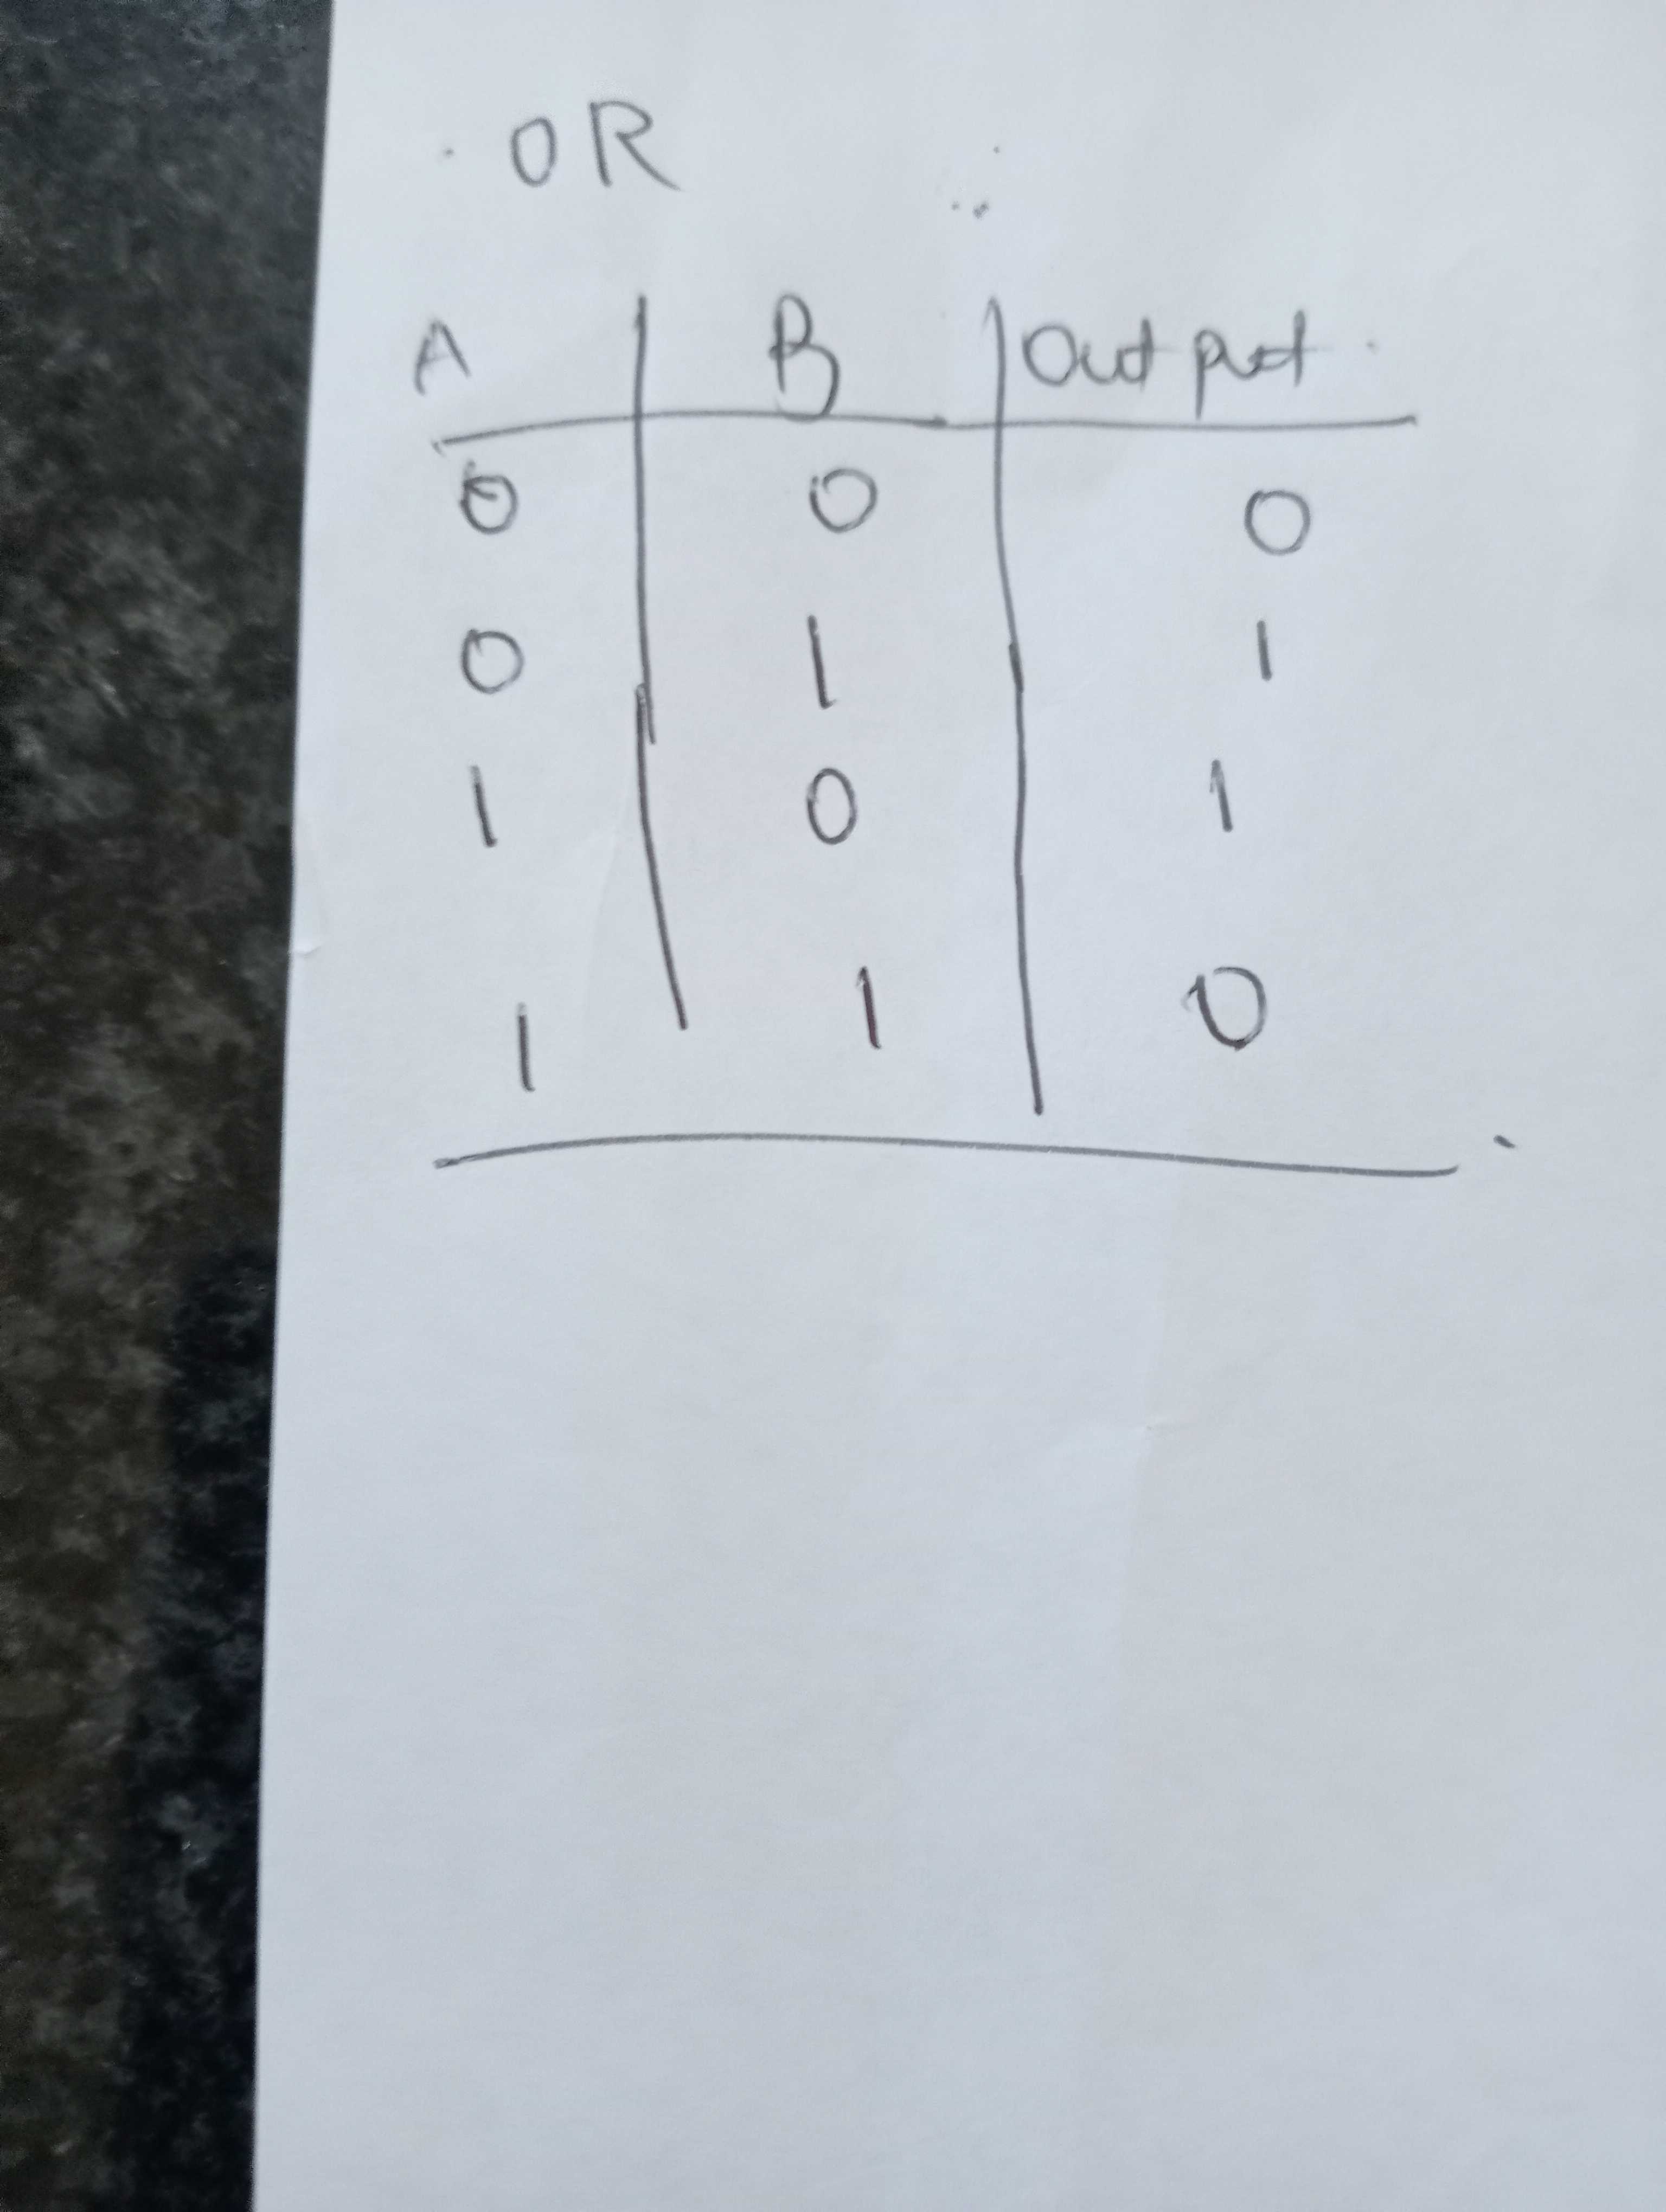 OR
A B Output
0 0 0
0 1 1
1 0 1
1 1 0